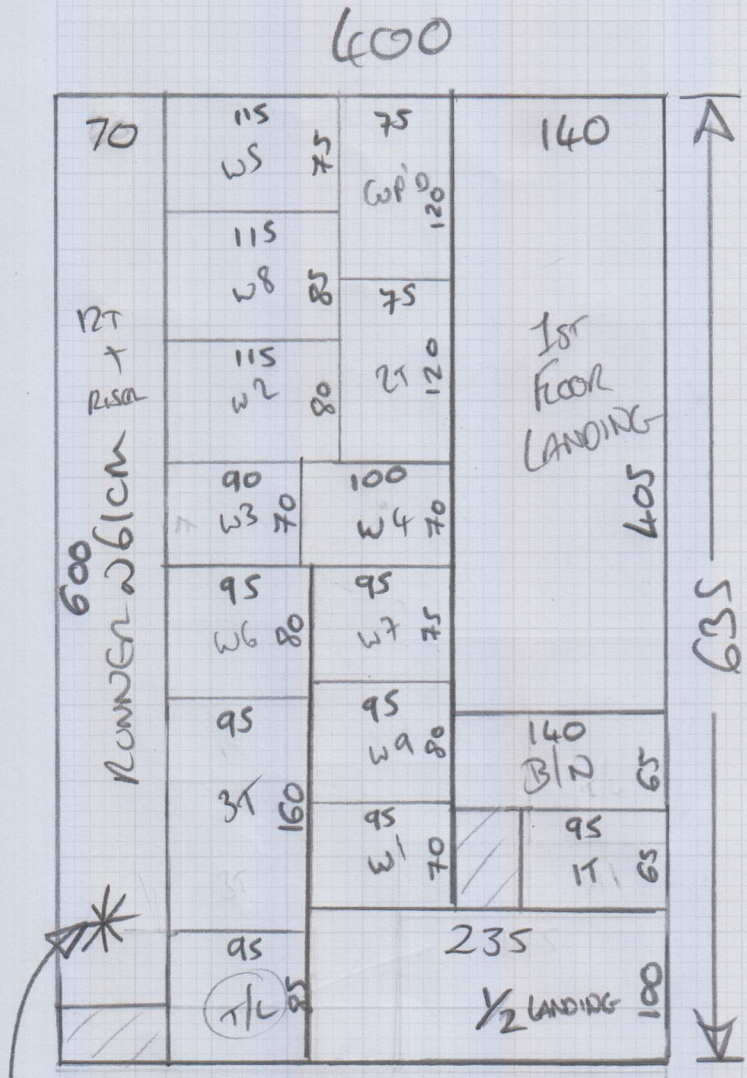 400
70
600
RUNNER @ 61CM
12T
+
RISER
115
W5
75
115
W8
85
115
W2
80
90
W3
70
95
W6
80
95
3T
160
95
T/L
85
75
CUP'D
120
75
2T
120
100
W4
70
95
W7
75
95
W9
80
95
W1
70
140
1ST
FLOOR
LANDING
405
140
B/N
65
95
1T
65
235
1/2 LANDING
100
635